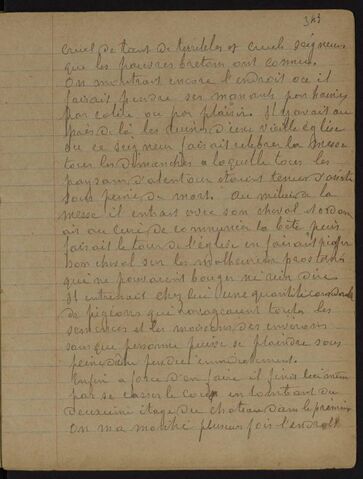 343
cruel de tant de terribles et cruels seigneurs
que les pauvres breton ont connus.
On montrait encore l'endroit où il
faisait pendre ses manants par haine
par colère ou par plaisir. Il y avait au
près de là les ruines d'une vieille église
où ce seigneur faisait celebrer la messe
tous les dimanches a laquelle tous les
paysans d'alentour etaient tenus d'assister
sous peine de mort. Au milieu de la
messe il entrait avec son cheval
au curé de communier la bête puis
faisait le tour de l'église en faisant
son cheval sur les malheureux prosternés
qui ne pouvaient bouger ne rien dire
Il entretenait chez lui une quantité
de pigeons qui ravageaient toutes les
semences et les moissons des environs
sans que personne puisse se plaindre sous
peine d'être pendu
Enfin a force d'en faire il finit lui même
par se casser le cou en tombant du
deuxième étage du chateau dans le premier
On m'a montré plusieurs fois l'endroit